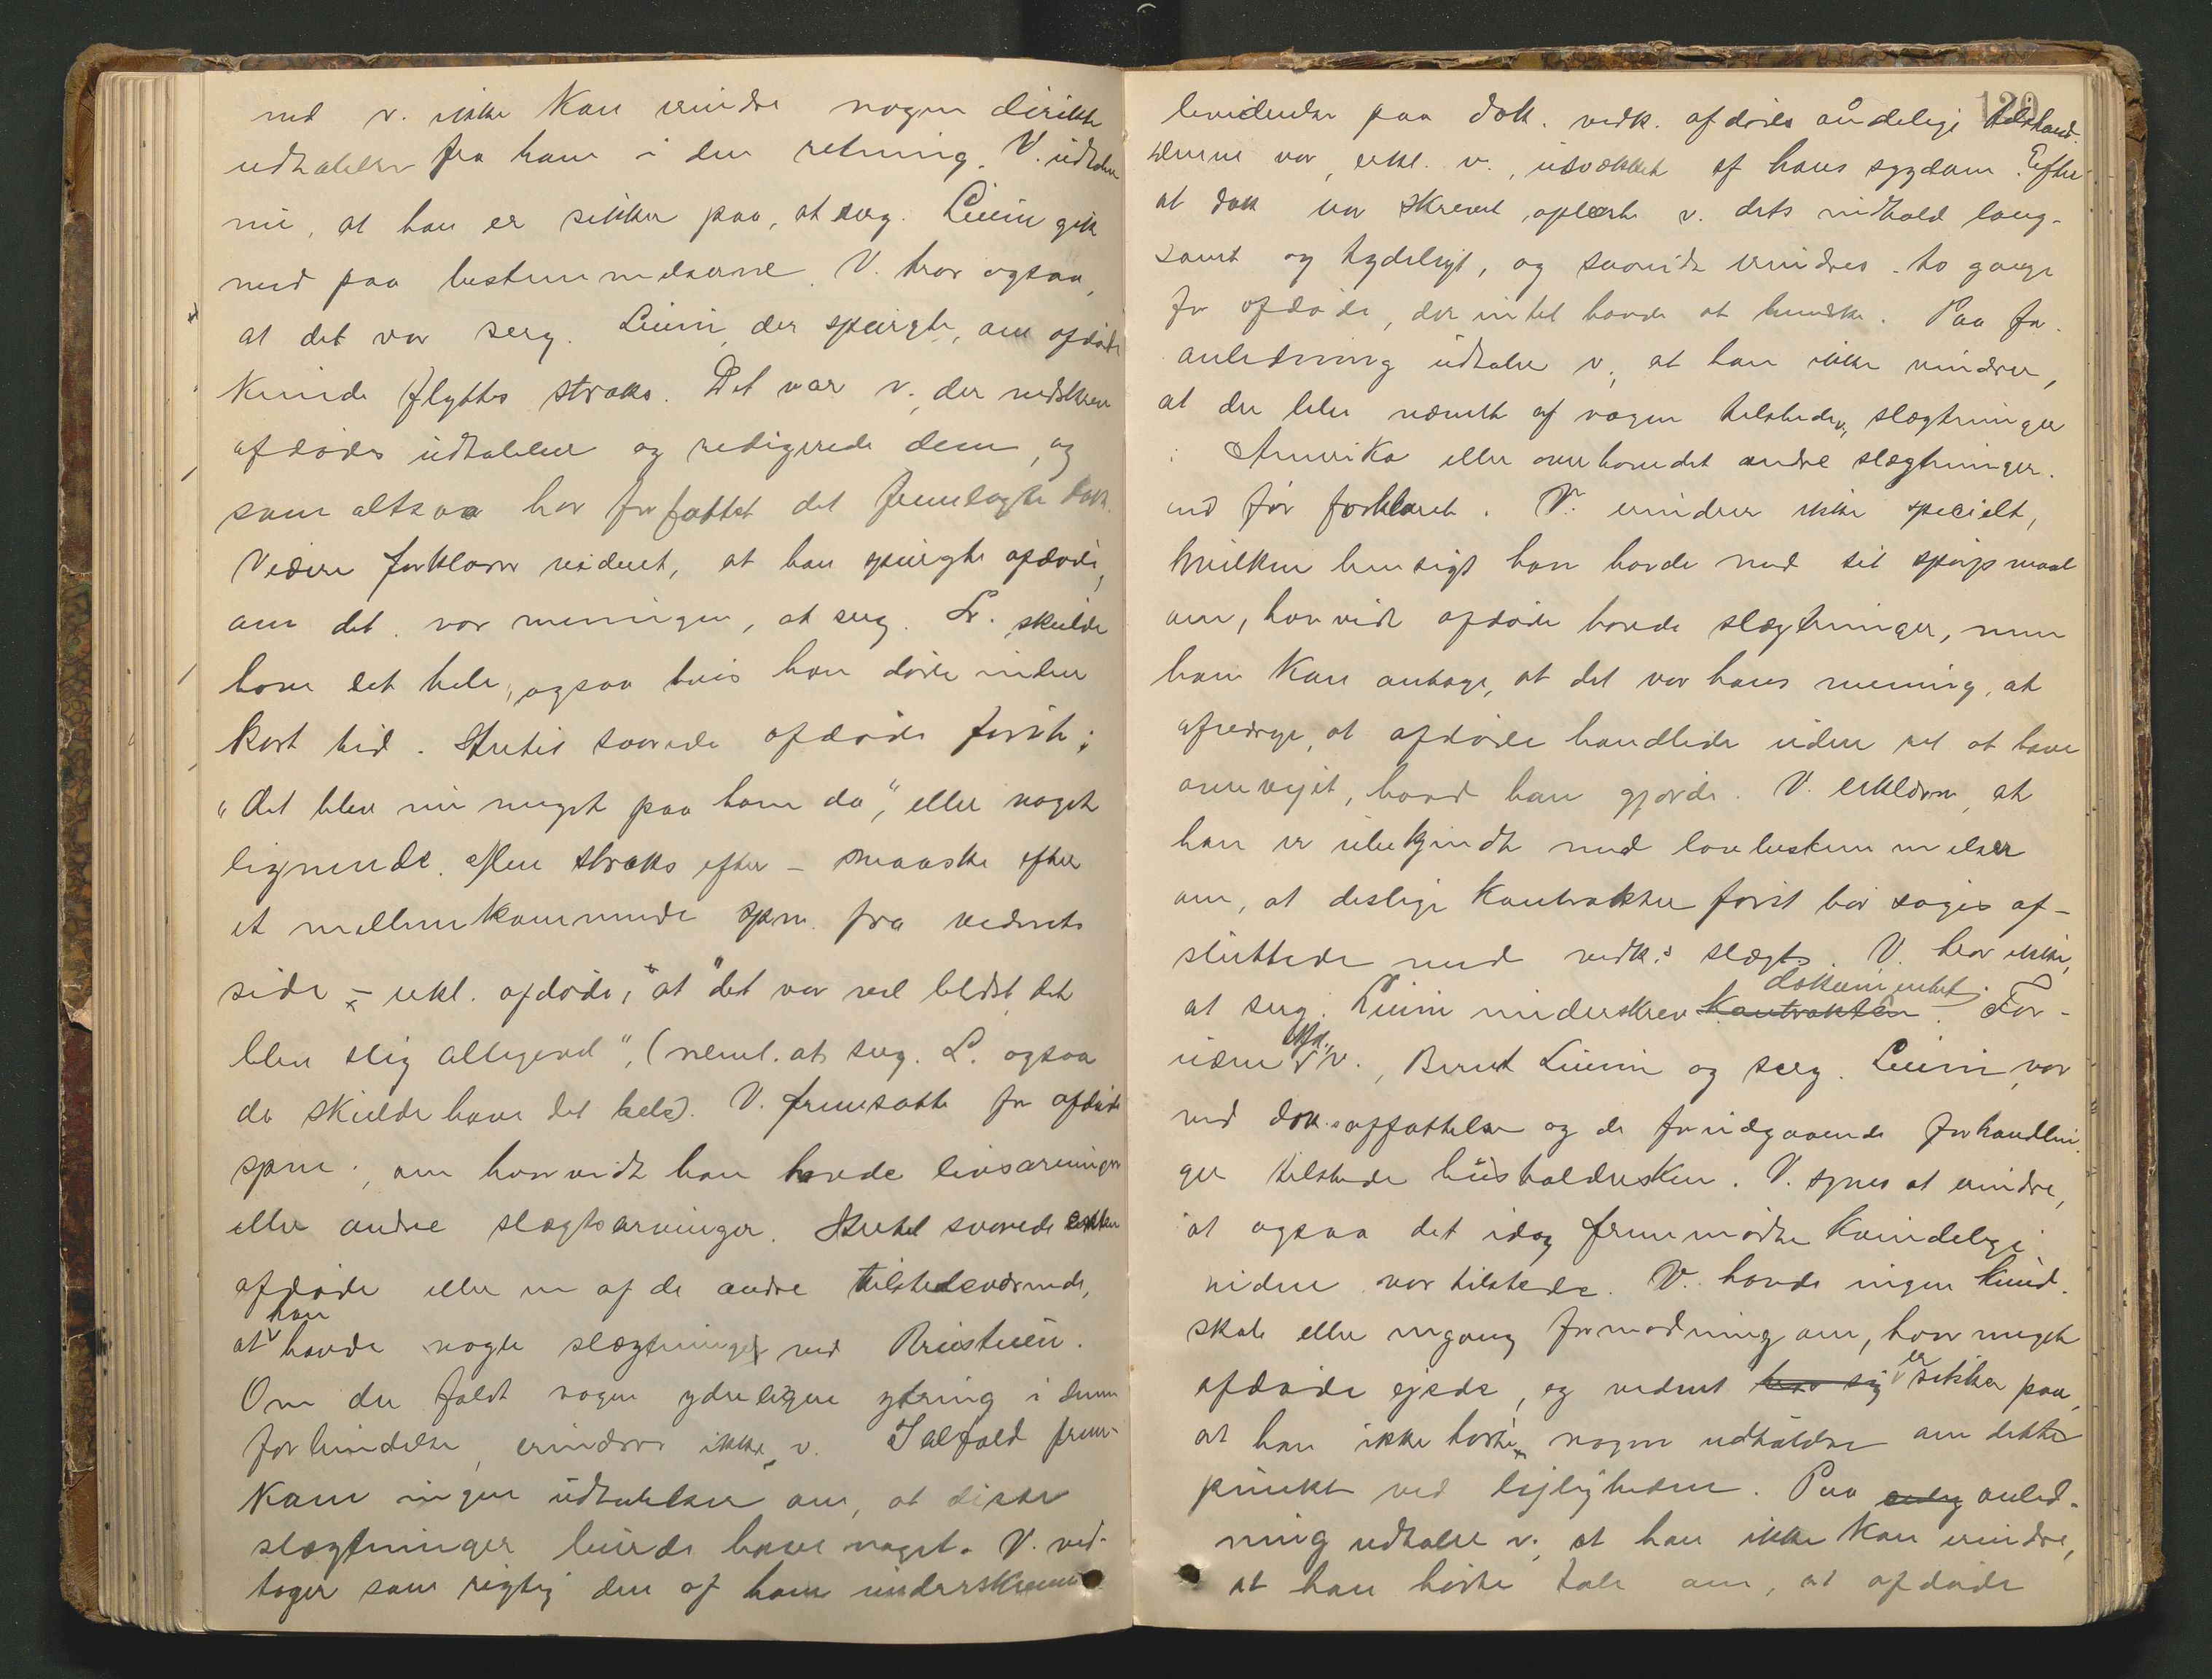 med v. ikke kan erindre nogen direkte
udtalelse fra ham i den retning. V. udtaler
nu, at han er sikker paa, at serg. Liuin gik
med paa bestemmelserne. V. tror ogsaa,
at det var serg. Liuin, der spurgte, om afdøde
kunde flyttes straks. Det var v., der nedskrev
afdødes udtalelser og redigerede dem, og
som altsaa har forfattet det fremlagte dok.
Videre forklarer vidnet, at han spurgte afdøde,
om det var meningen, at serg. L. skulde
have det hele, ogsaa hvis han døde inden
kort tid. Hertil svarede afdøde først:
"det blev nu meget paa ham da", eller noget
lignende. Men straks efter – maaske efter
et mellemkommende spm. fra vidnets
side – erkl. afdøde, at "det var vel bedst, det
blev slig alligevel", (neml. at serg. L. ogsaa
da skulde have det hele). V. fremsatte for afdøde
spm., om hvorvidt han havde livsarvinger
eller andre slægtsarvinger. Hertil svarede enten
afdøde eller en af de andre tilstedeværende,
at han havde nogle slægtninger ved Brustuen.
Om der faldt nogen yderligere ytring i denne
forbindelse, erindrer ikke v. Ialfald frem-
kom ingen udtalelser om, at disse
slægtninger burde have noget. V. ved-
tager som rigtig den af ham underskrevne
130
bevidnelse paa dok. vedk. afdødes åndelige tilstand.
Denne var, erkl. v., usvækket af hans sygdom. Efter
at dok var skrevet, oplæste v. dets indhold lang-
somt og tydeligt, og saavidt erindres to gange
for afdøde, der intet havde at bemerke. Paa for-
anledning udtaler v., at han ikke erindrer,
at der blev nævnt af nogen tilstedev. slægtninger
i Amerika eller overhovedet andre slægtninger.
end før forklaret. V. erindrer ikke specielt,
hvilken hensigt han havde med sit spørgsmaal
om, hvorvidt afdøde havde slægtninger, men
han kan antage, at det var hans mening, at
afværge, at afdøde handlede uden ret at have
overvejet, hvad han gjorde. V. erklærer, at
han er ubekjendt med lovbestemmelser
om, at deslige kontrakter først bør søges af-
sluttede med vedk.s slægt. V. tror ikke,
at serg. Liuin underskrev kontrakten dokumentet. For-
uden afd., v., Bernt Liuin og serg. Liuin var
ved dok.s affattelse og de forudgaaende forhandlin-
ger tilstede husholdersken. V. synes at erindre,
at ogsaa det idag fremmødte kvindelige
vidne var tilstede. V. havde ingen kund-
skab eller engang formodning om, hvor meget
afdøde ejede, og vidnet er sikker paa,
at han ikke hørte nogen udtalelse om dette
punkt ved lejligheden. Paa anled-
ning udtaler v., at han ikke kan erindre,
at han hørte tale om, at afdøde